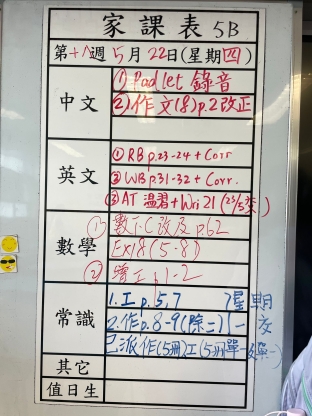 家課表 5B
第十八週 5月22日(星期四)
中文
① Padlet 錄音
② 作文(8)p.2改正
英文
① RB p.23-24 + Corr
② WB p.31-32 + Corr.
③ AT 溫習 + Wri 21 (23/5交)
數學
① 數T.C改及p.62
Ex18(5-8)
② p.1-2
常識
1. 工 p.5,7
2. 作p.8-9(除二)
星期一交
已派作(5冊)工(5冊單一
其它
值日生